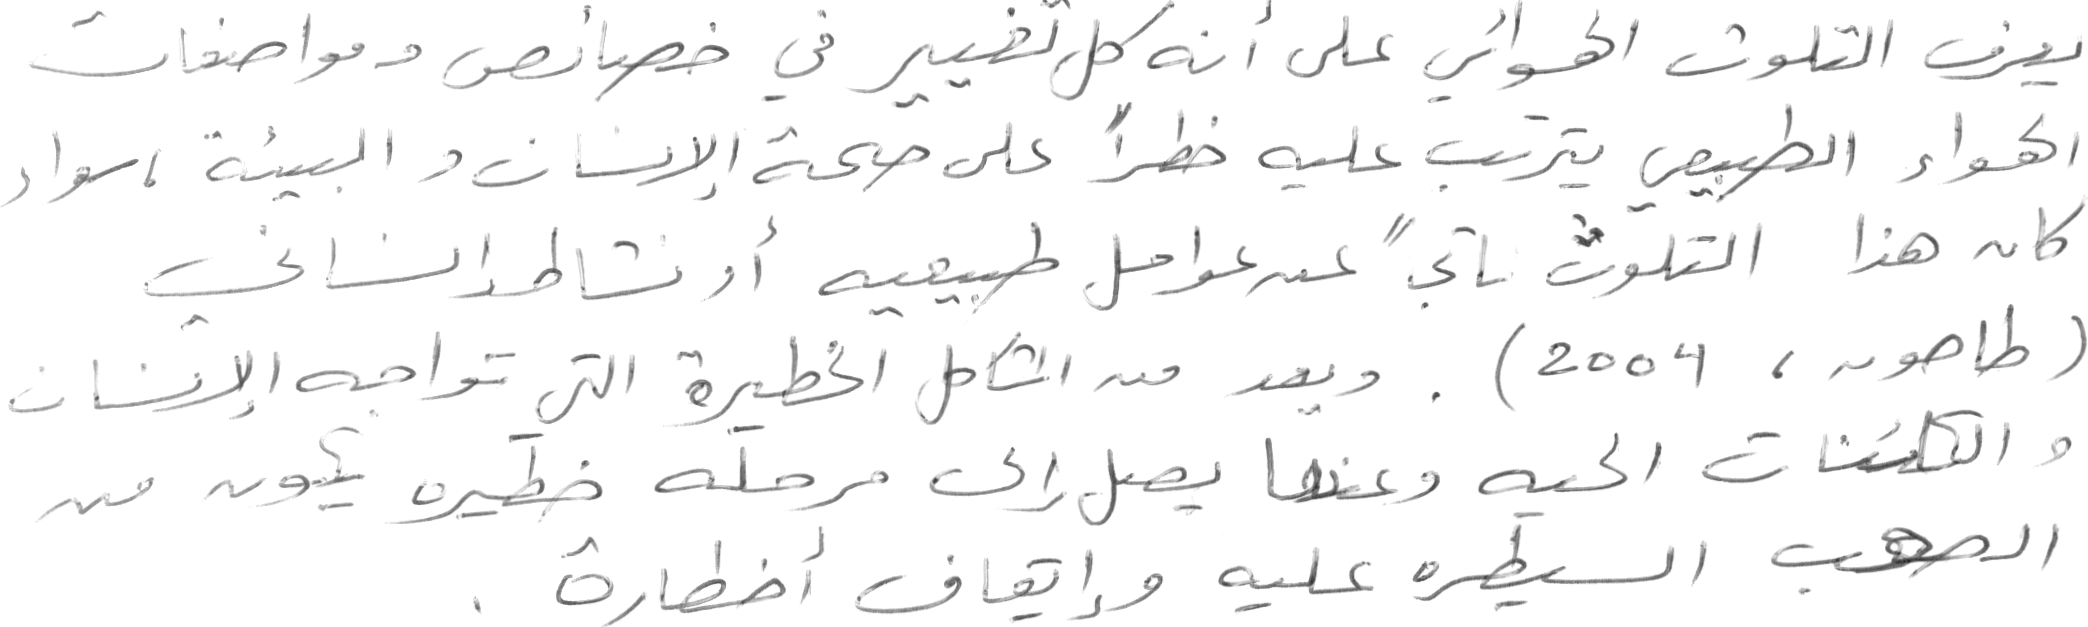 يعرف التلوث الهوائي على أنه كل تغيير في خصائص و مواصفات
الهواء الطبيعي يترتب عليه خطراً على صحة الإنسان و البيئة ، سواء
كان هذا التلوث ناتجاً عن عوامل طبيعيه أو نشاط انساني
(طاحون ، 2004) . ويعد من المشاكل الخطيرة التي تواجه الإنسان
و الكائنات الحيه وعندما يصل إلى مرحله خطيره يكون من
الصعب السيطره عليه و إيقاف أخطارة .